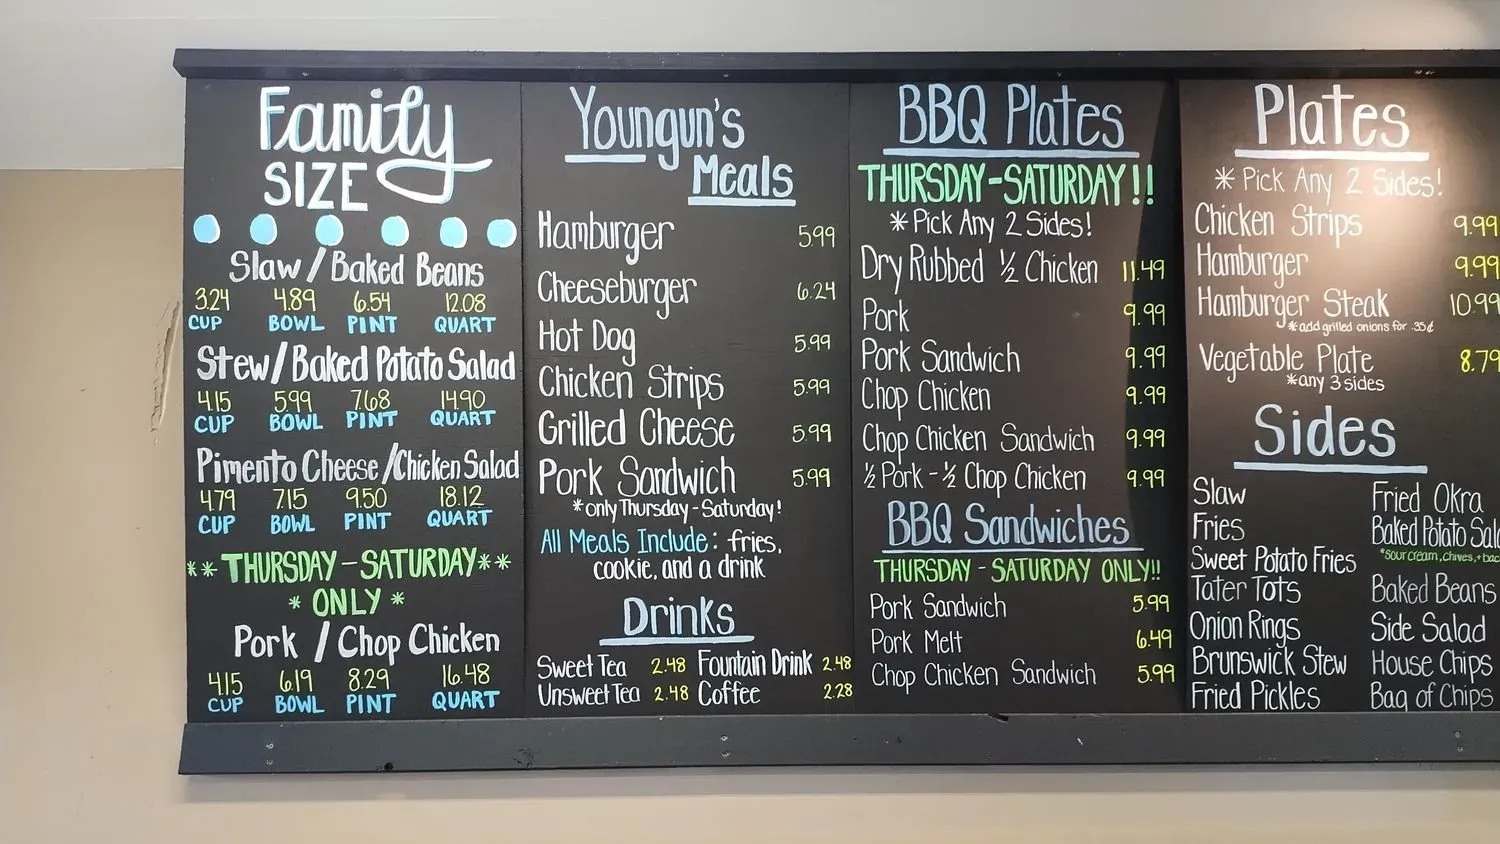 Family
SIZE
Slaw / Baked Beans
3.24 4.89 6.54 12.08
CUP BOWL PINT QUART
Stew / Baked Potato Salad
4.15 5.99 7.68 14.90
CUP BOWL PINT QUART
Pimento Cheese / Chicken Salad
4.79 7.15 9.50 18.12
CUP BOWL PINT QUART
** THURSDAY - SATURDAY **
* ONLY *
Pork / Chop Chicken
4.15 6.19 8.29 16.48
CUP BOWL PINT QUART
Youngun's
Meals
Hamburger 5.99
Cheeseburger 6.24
Hot Dog 5.99
Chicken Strips 5.99
Grilled Cheese 5.99
Pork Sandwich 5.99
*only Thursday - Saturday!
All Meals Include: fries,
cookie, and a drink
Drinks
Sweet Tea 2.48 Fountain Drink 2.48
Unsweet Tea 2.48 Coffee 2.28
BBQ Plates
THURSDAY - SATURDAY!!
* Pick Any 2 Sides!
Dry Rubbed ½ Chicken 11.49
Pork 9.99
Pork Sandwich 9.99
Chop Chicken 9.99
Chop Chicken Sandwich 9.99
½ Pork - ½ Chop Chicken 9.99
BBQ Sandwiches
THURSDAY - SATURDAY ONLY!!
Pork Sandwich 5.99
Pork Melt 6.49
Chop Chicken Sandwich 5.99
Plates
* Pick Any 2 Sides!
Chicken Strips 9.99
Hamburger 9.99
Hamburger Steak 10.99
*add grilled onions for .35¢
Vegetable Plate 8.79
*any 3 sides
Sides
Slaw Fried Okra
Fries Baked Potato
Sweet Potato Fries *sour cream, chives, +
Tater Tots Baked Beans
Onion Rings Side Salad
Brunswick Stew House Chips
Fried Pickles Bag of Chips